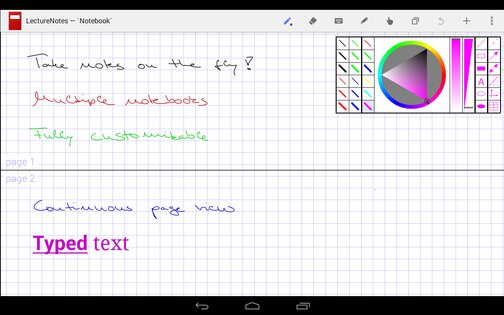 LectureNotes — `Notebook´
Take notes on the fly!
Multiple notebooks
Fully customizable
page 1
page 2
Continuous page view
Typed text
A